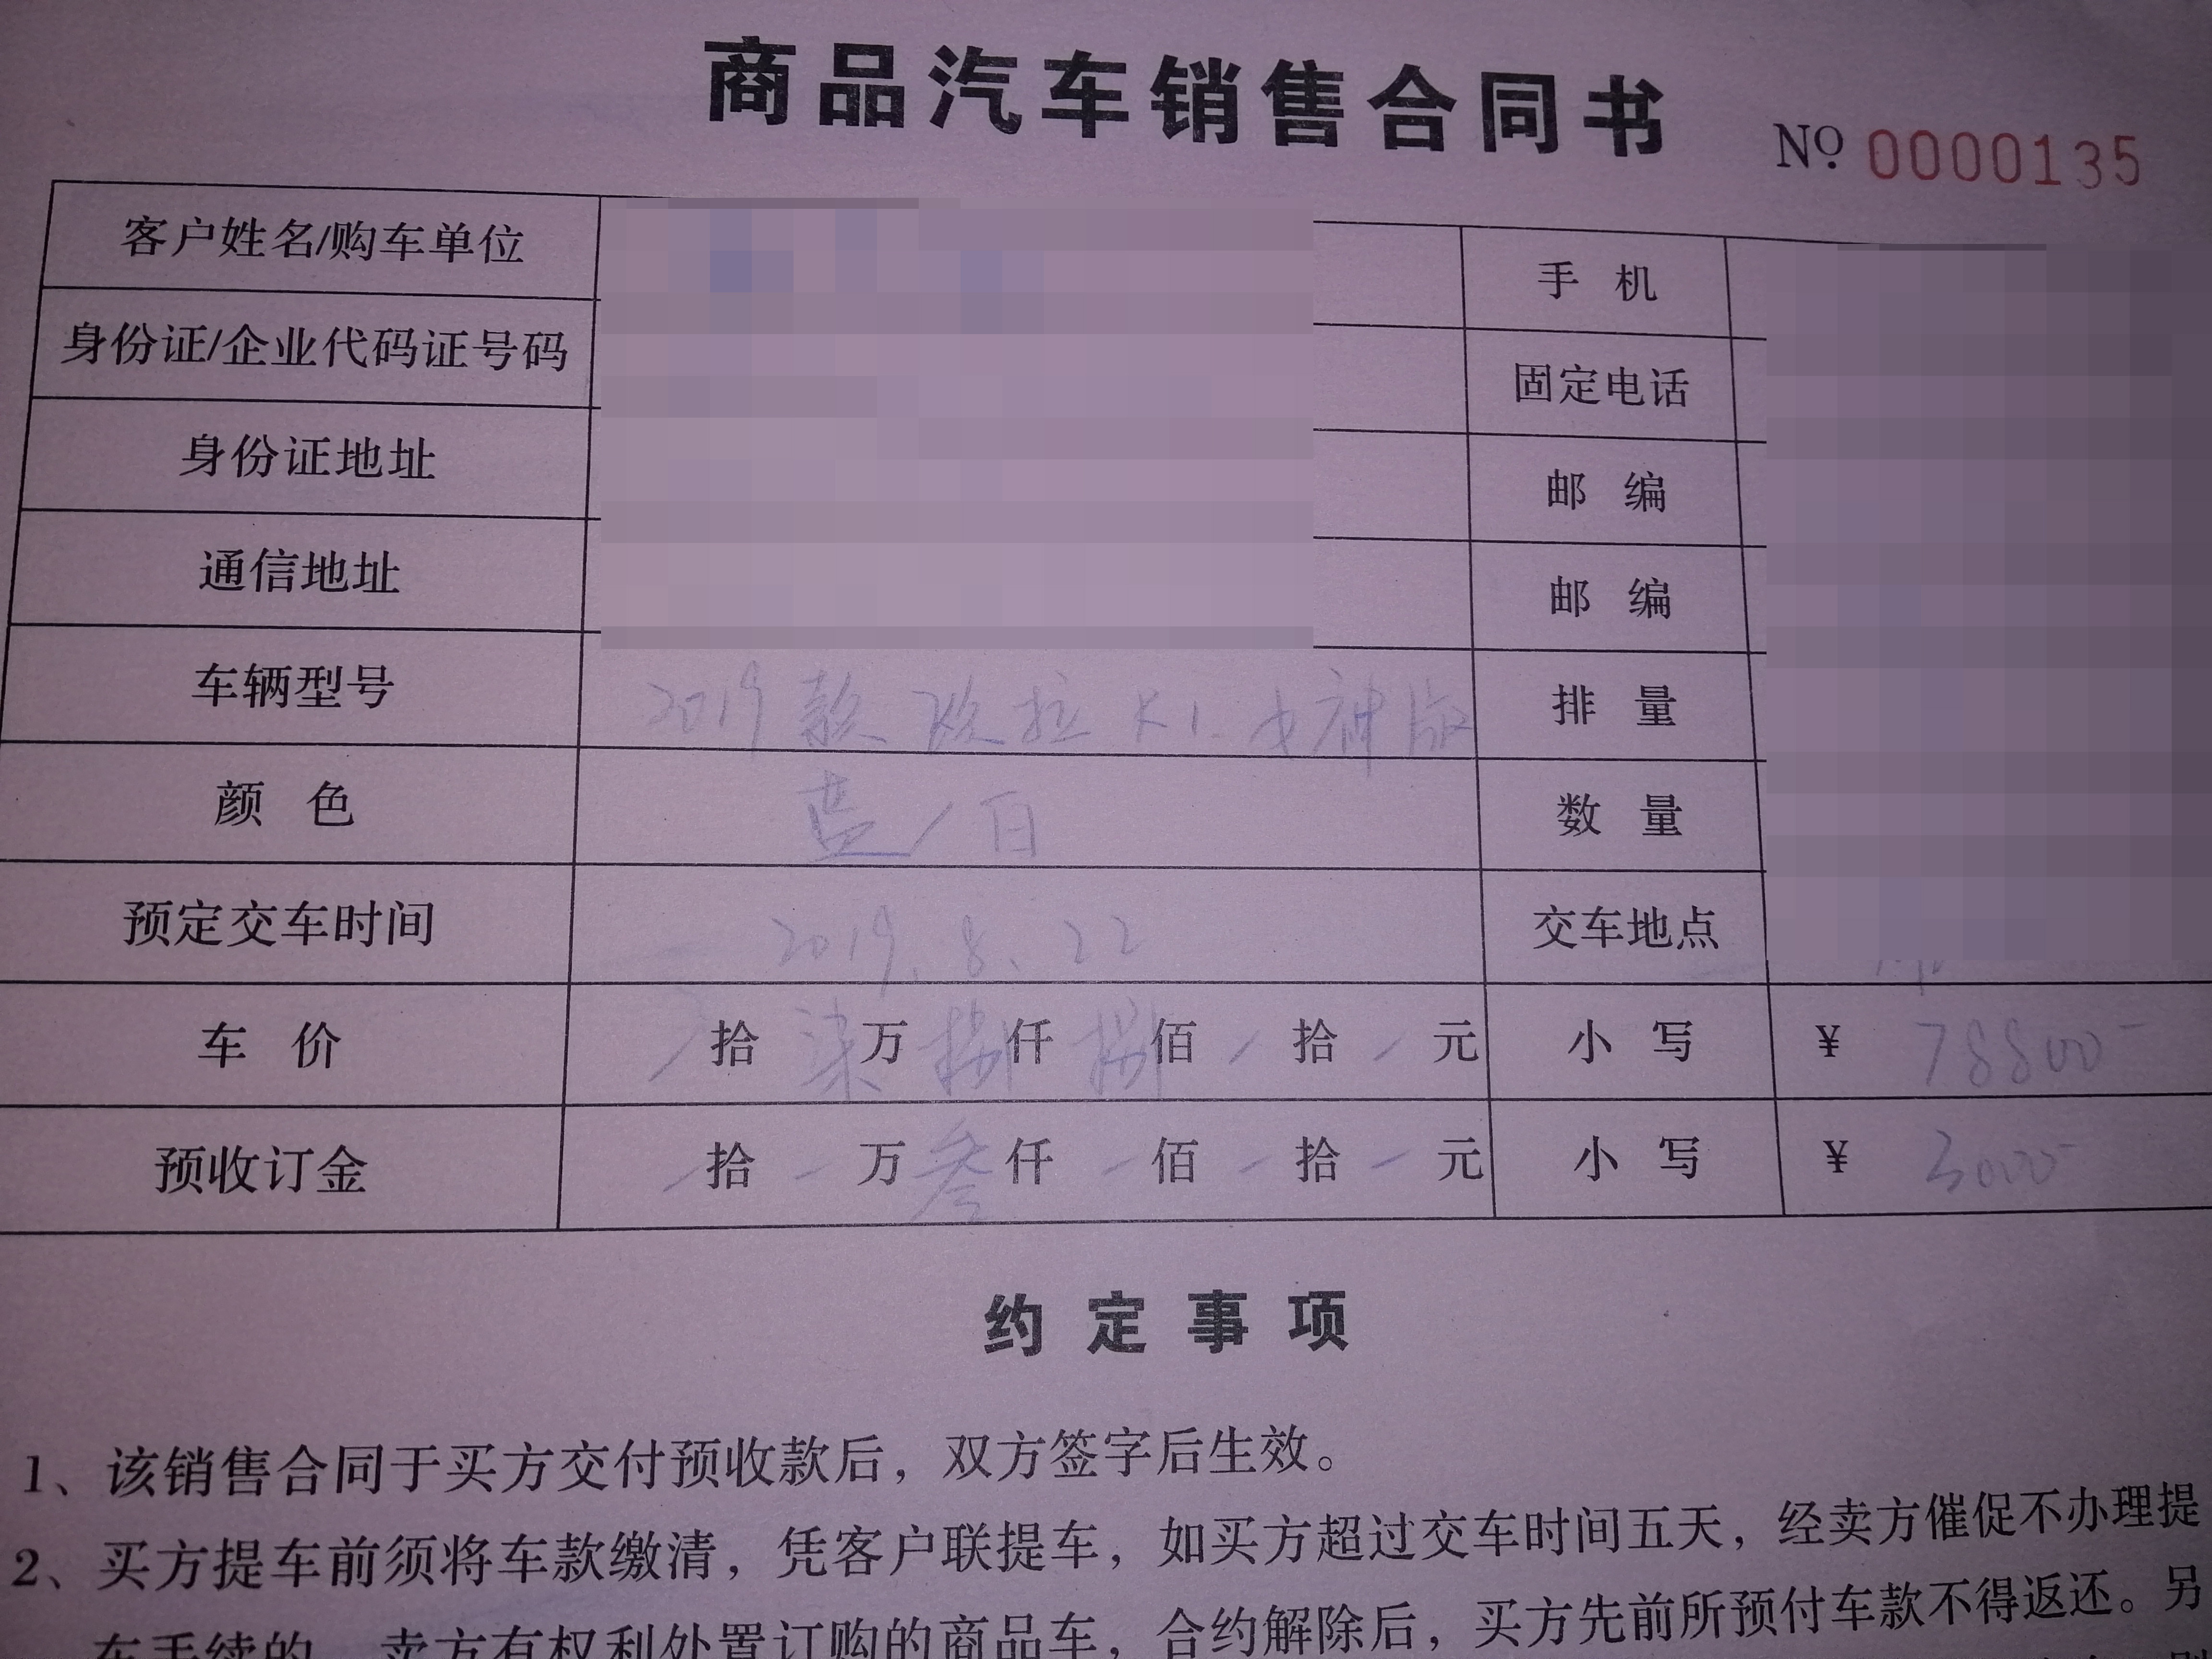 商品汽车销售合同书
No. 0000135
客户姓名/购车单位 手机
身份证/企业代码证号码 固定电话
身份证地址 邮编
通信地址 邮编
车辆型号 2019款 欧拉 R1 女神版 排量
颜色 蓝/白 数量
预定交车时间 2019.8.22 交车地点
车价 / 拾 柒 万 捌 仟 捌 佰 / 拾 / 元 小写 ¥ 78800-
预收订金 / 拾 / 万 叁 仟 / 佰 / 拾 / 元 小写 ¥ 3000-
约定事项
1、该销售合同于买方交付预收款后，双方签字后生效。
2、买方提车前须将车款缴清，凭客户联提车，如买方超过交车时间五天，经卖方催促不办理提
车手续的，卖方有权利处置订购的商品车，合约解除后，买方先前所预付车款不得返还。另